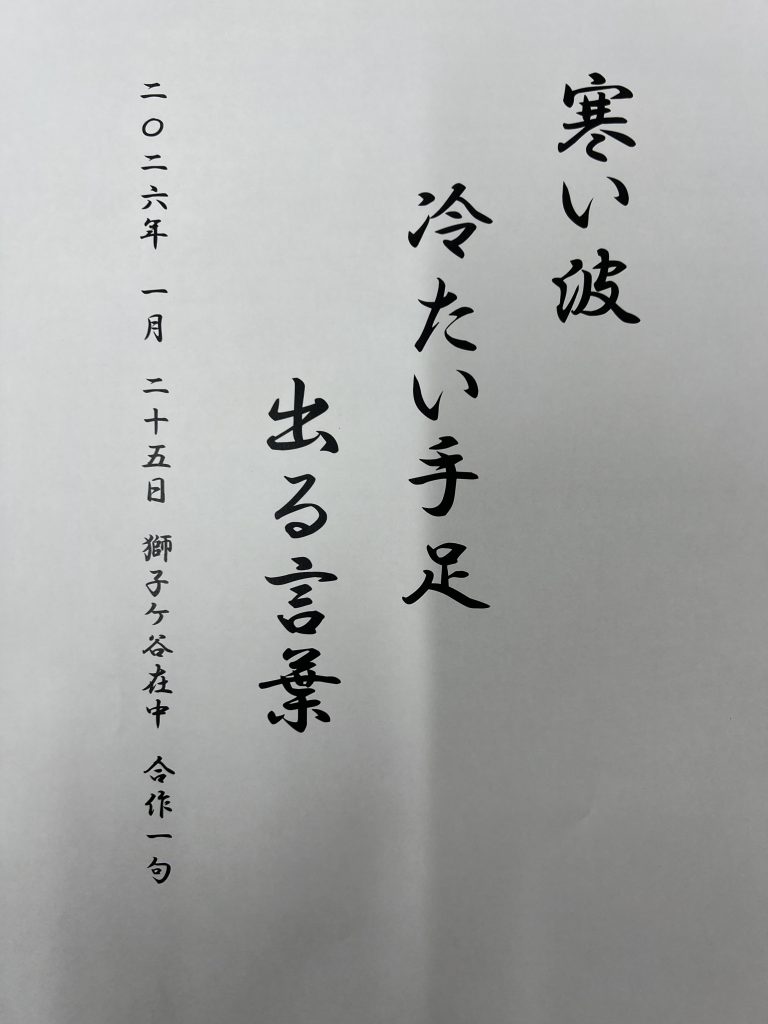 寒い波
冷たい手足
出る言葉
二〇二六年 一月 二十五日 獅子ケ谷在中 合作一句